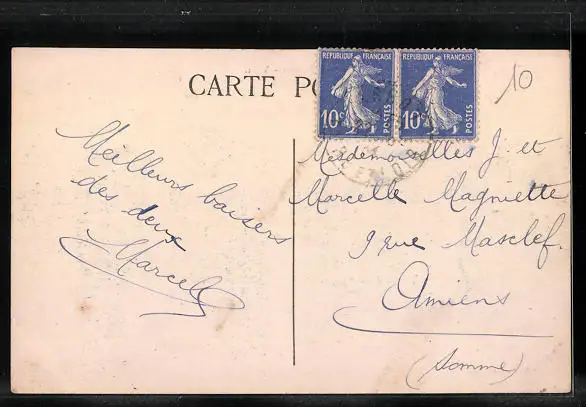 CARTE PO
10
REPUBLIQUE FRANÇAISE
10c
POSTES
REPUBLIQUE FRANÇAISE
10c
POSTES
Meilleurs baisers
des deux
Marcel
Mesdemoiselles J. et
Marcelle Magniette
9 rue Masclef.
Amiens
(Somme)